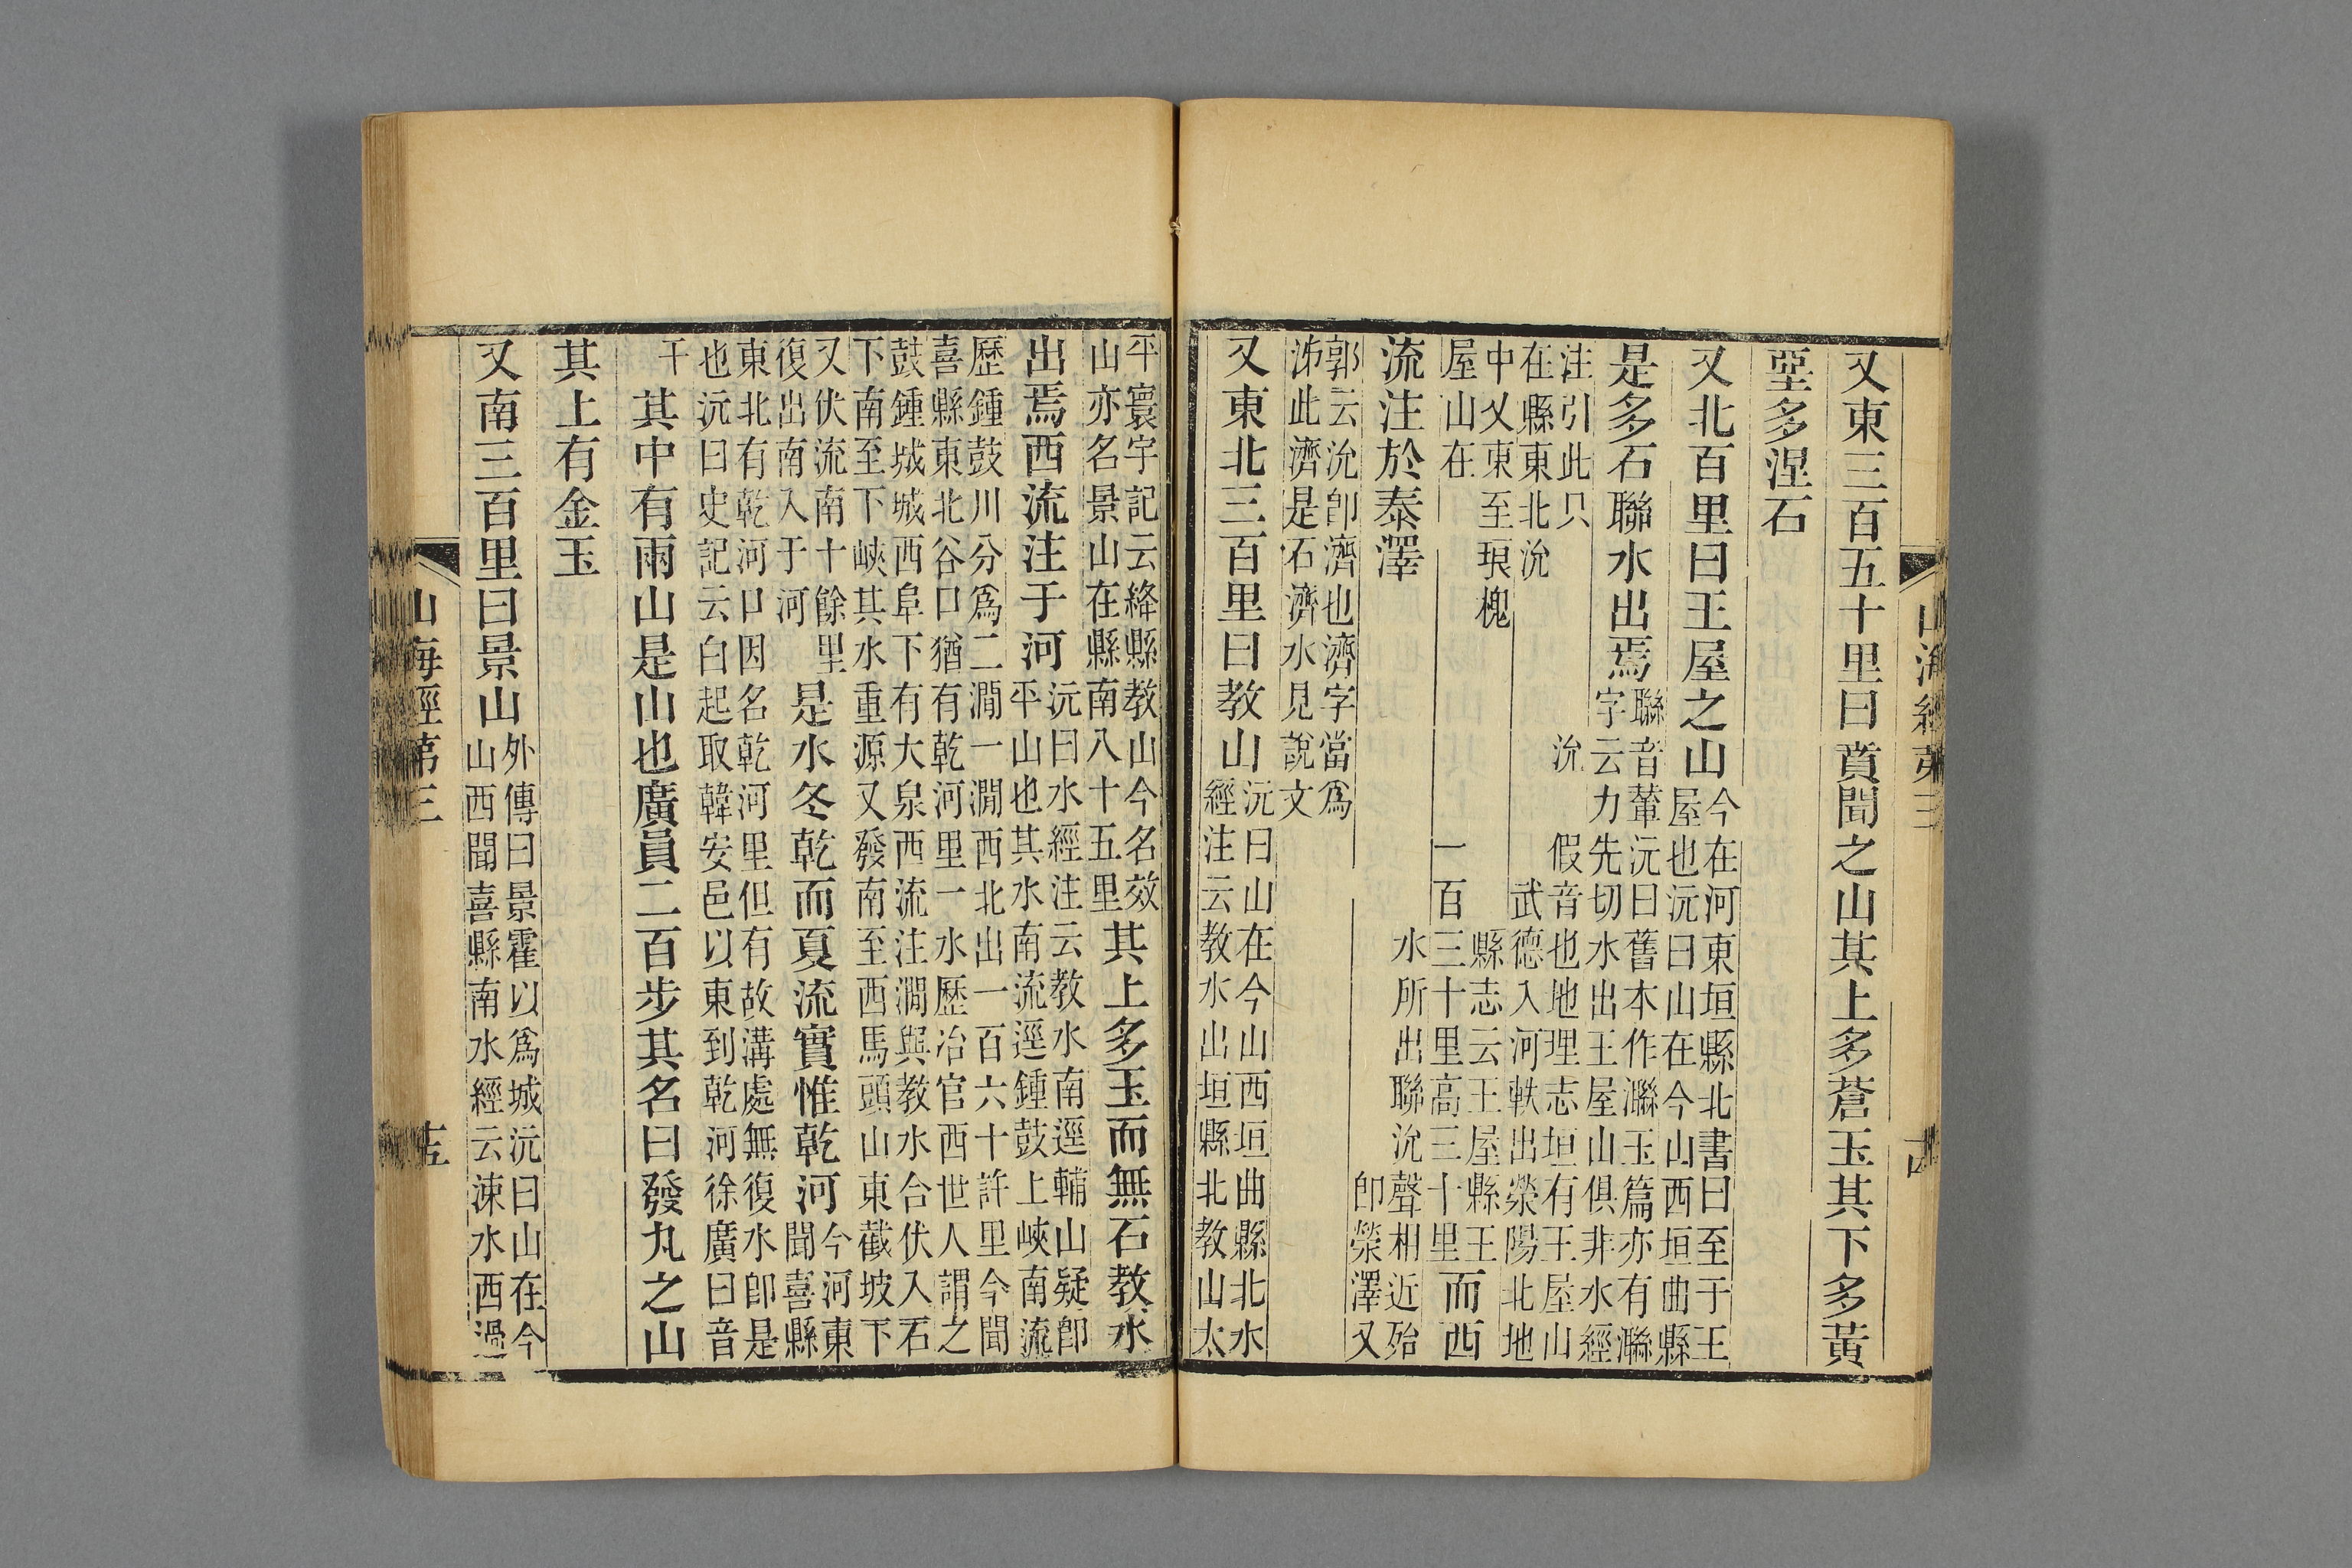 山海經第三
又東三百五十里曰賁聞之山其上多蒼玉其下多黃
堊多涅石
又北百里曰王屋之山
今在河東垣縣北書曰至于王
屋也沅曰山在今山西垣曲縣
是多石聯水出焉
聯音輦沅曰舊本作㶌玉篇亦有㶌
字云力先切水出王屋山俱非水經
注引此只 沇 假音也地理志垣有王屋山
在縣東北沇 武德入河軼出滎陽北地
中乂東至琅槐 縣志云王屋縣王
屋山在 一百三十里高三十里
而西
流注於泰澤
水所出聯沇聲相近殆
卽滎澤又
郭云沇卽濟也濟字當爲
泲此濟是石濟水見說文
又東北三百里曰教山
沅曰山在今山西垣曲縣北水
經注云教水出垣縣北教山太
平寰宇記云絳縣教山今名效
山亦名景山在縣南八十五里
其上多玉而無石教水
出焉西流注于河
沅曰水經注云教水南逕輔山疑卽
平山也其水南流逕鍾鼓上峽南流
歷鍾鼓川分爲二澗一澗西北出一百六十許里今聞
喜縣東北谷口猶有乾河里一水歷冶官西世人謂之
鼓鍾城城西阜下有大泉西流注澗與教水合伏入石
下南至下峽其水重源又發南至西馬頭山東截坡下
又伏流南十餘里
復出南入于河
是水冬乾而夏流實惟乾河
今河東
聞喜縣
東北有乾河口因名乾河里但有故溝處無復水卽是
也沅曰史記云白起取韓安邑以東到乾河徐廣曰音
干
其中有雨山是山也廣員二百步其名曰發丸之山
其上有金玉
又南三百里曰景山
外傳曰景霍以爲城沅曰山在今
山西聞喜縣南水經云涑水西過
山海經第三
十五